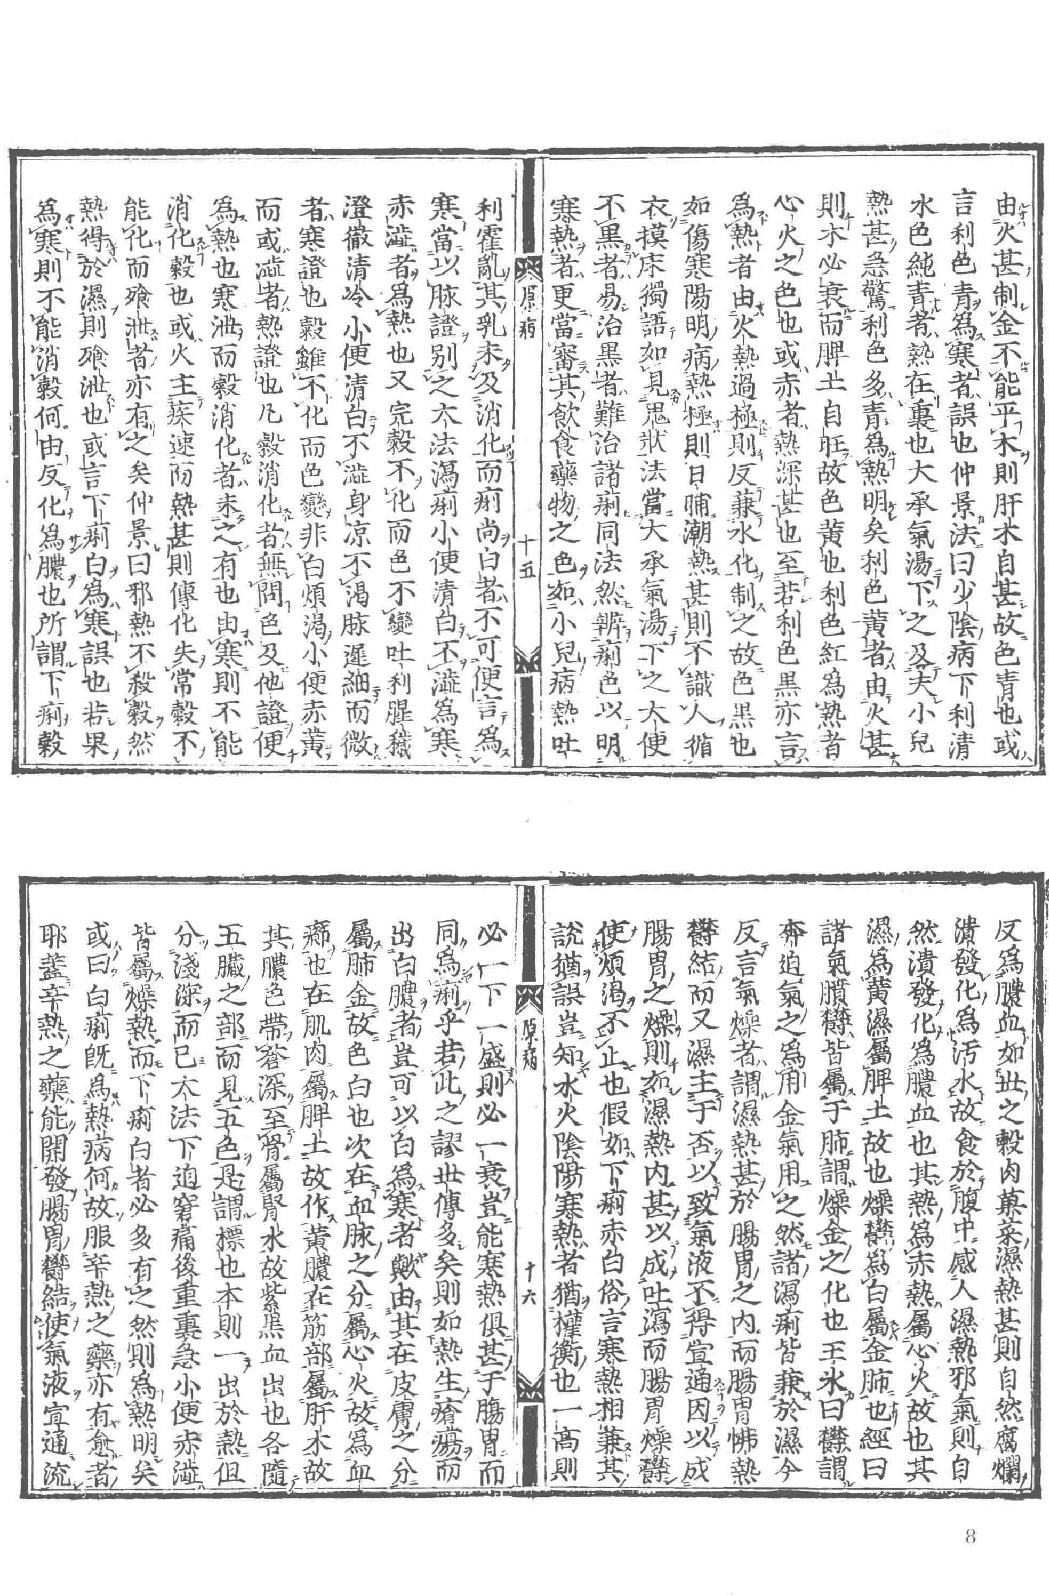 由火甚制金不能平木則肝木自甚故色青也或
言利色青爲寒者誤也仲景法曰少陰病下利清
水色純青者熱在裏也大承氣湯下之及夫小兒
熱甚急驚利色多青爲熱明矣利色黃者由火甚
則水必衰而脾土自旺故色黃也利色紅爲熱者
心火之色也或赤者熱深甚也至若利色黑亦言
爲熱者由火熱過極則反兼水化制之故色黑也
如傷寒陽明病熱極則日晡潮熱甚則不識人循
衣摸床獨語如見鬼狀法當大承氣湯下之大便
不黑者易治黑者難治諸痢同法然辨痢色以明
寒熱者更當審其飲食藥物之色如小兒病熱吐
原病
十五
利霍亂其乳未及消化而痢尚白者不可便言爲
寒當以脉證別之大法瀉痢小便清白不澁爲寒
赤澁者爲熱也又完穀不化而色不變吐利腥穢
澄徹清冷小便清白不澁身凉不渴脉遲細而微
者寒證也穀雖不化而色變非白煩渴小便赤黃
而或澁者熱證也凡穀消化者無問色及他證便
爲熱也寒泄而穀消化者未之有也由寒則不能
消化穀也或火主疾速而熱甚則傳化失常穀不
能化而飧泄者亦有之矣仲景曰邪熱不殺穀然
熱得於濕則飧泄也或言下痢白爲寒誤也若果
爲寒則不能消穀何由反化爲膿也所謂下痢穀
反爲膿血如世之穀肉菓菜濕熱甚則自然腐爛
潰發化爲汚水故食於腹中感人濕熱邪氣則自
然潰發化爲膿血也其熱爲赤熱屬心火故也其
濕爲黃濕屬脾土故也燥鬱爲白屬金肺也經曰
諸氣膹鬱皆屬于肺謂燥金之化也王氷曰鬱謂
奔迫氣之爲用金氣用之然諸瀉痢皆兼於濕今
反言氣燥者謂濕熱甚於腸胃之內而腸胃怫熱
鬱結而又濕主于否以致氣液不得宣通因以成
腸胃之燥則如濕熱內甚以成吐瀉而腸胃燥鬱
使煩渴不止也假如下痢赤白俗言寒熱相兼其
說猶誤豈知水火陰陽寒熱者猶權衡也一高則
原病
十六
必一下一盛則必一衰豈能寒熱俱甚于膓胃而
同爲痢乎若此之謬世傳多矣則如熱生瘡瘍而
出白膿者豈可以白爲寒者歟由其在皮膚之分
屬肺金故色白也次在血脉之分屬心火故爲血
癤也在肌肉屬脾土故作黃膿在筋部屬肝木故
其膿色帶蒼深至骨屬腎水故紫黑血出也各隨
五臟之部而見五色是謂標也本則一出於熱但
分淺深而已大法下迫窘痛後重裏急小便赤澁
皆屬燥熱而下痢白者必多有之然則爲熱明矣
或曰白痢旣爲熱病何故服辛熱之藥亦有愈者
耶蓋辛熱之藥能開發腸胃鬱結使氣液宣通流
8